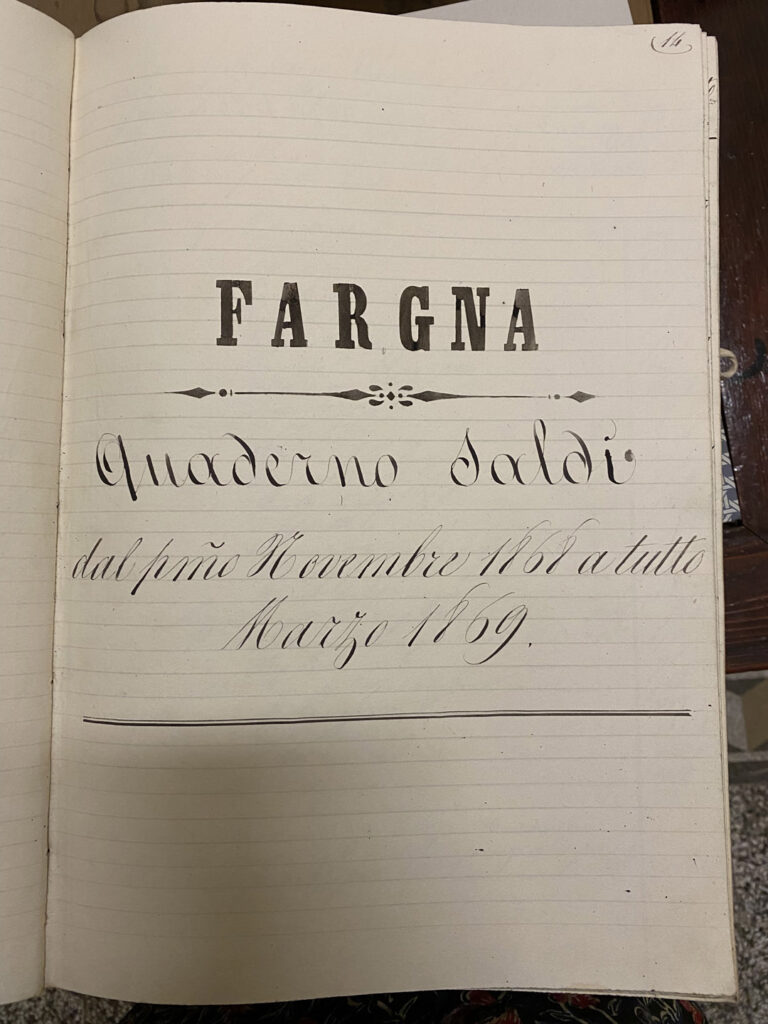 14
FARGNA
Quaderno Saldi
dal pm̃o Novembre 1868 a tutto
Marzo 1869.